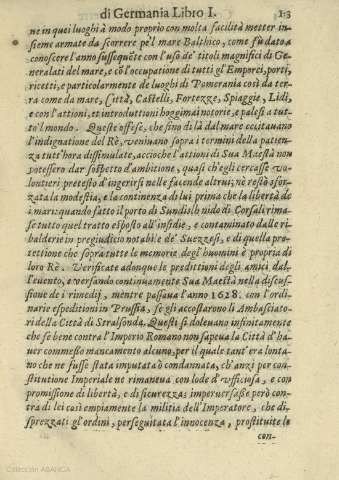 di Germania Libro I. 13
ne in quei luoghi à modo proprio con molta facilità metter in-
sieme armate da scorrere pe'l mare Balthico, come fù dato a
conoscere l'anno susseguẽte con l'uso de' titoli magnifici di Ge-
neralati del mare, e cõ l'occupatione di tutti gl'Emporei, porti,
ricetti, e particolarmente de luoghi di Pomerania così da ter-
ra come da mare, Città, Castelli, Fortezze, Spiaggie, Lidi,
e con l'attioni, et introduttioni hoggimai notorie, e palesi a tut-
to'l mondo. Queste offese, che sino di là dal mare eccitauano
l'indignatione del Rè, veniuano sopra i termini della patien-
za tutt'hora dissimulate, accioche l'attioni di Sua Maestà non
potessero dar sospetto d'ambitione, quasi ch'egli cercasse vo-
lontieri pretesto d'ingerirsi nelle facende altrui; nè restò sfor-
zata la modestia, e la continenza di lui prima che la libertà de
i mari: quando fatto il porto di Sundisch nido di Corsali rima-
se tutto quel tratto esposto all'insidie, e contaminato dalle ri-
balderie in pregiudicio notabile de' Suezzesi, e di quella pro-
tettione che sopra tutte le memorie degl'huomini è propria di
loro Rè. Verificate adonque le predittioni degli amici dal-
l'euento, e versando continuamente Sua Maestà nella discus-
sione de i rimedij, mentre passaua l'anno 1628. con l'ordi-
narie espeditioni in Prussia, se gli accostarono li Ambasciato-
ri della Città di Stralsonda. Questi si doleuano infinitamente
che se bene contra l'Imperio Romano non sapeua la Città d'ha-
uer commesso mancamento alcuno, per il quale tant'era lonta-
no che ne fusse stata imputata ò condannata, ch'anzi per con-
stitutione Imperiale ne rimaneua con lode d'vfficiosa, e con
promissione di libertà, e di sicurezza; imperuersasse però con-
tra di lei così empiamente la militia dell'Imperatore, che di-
sprezzati gl'ordini, perseguitata l'innocenza, prostituite le
con-
Colección ABANCA